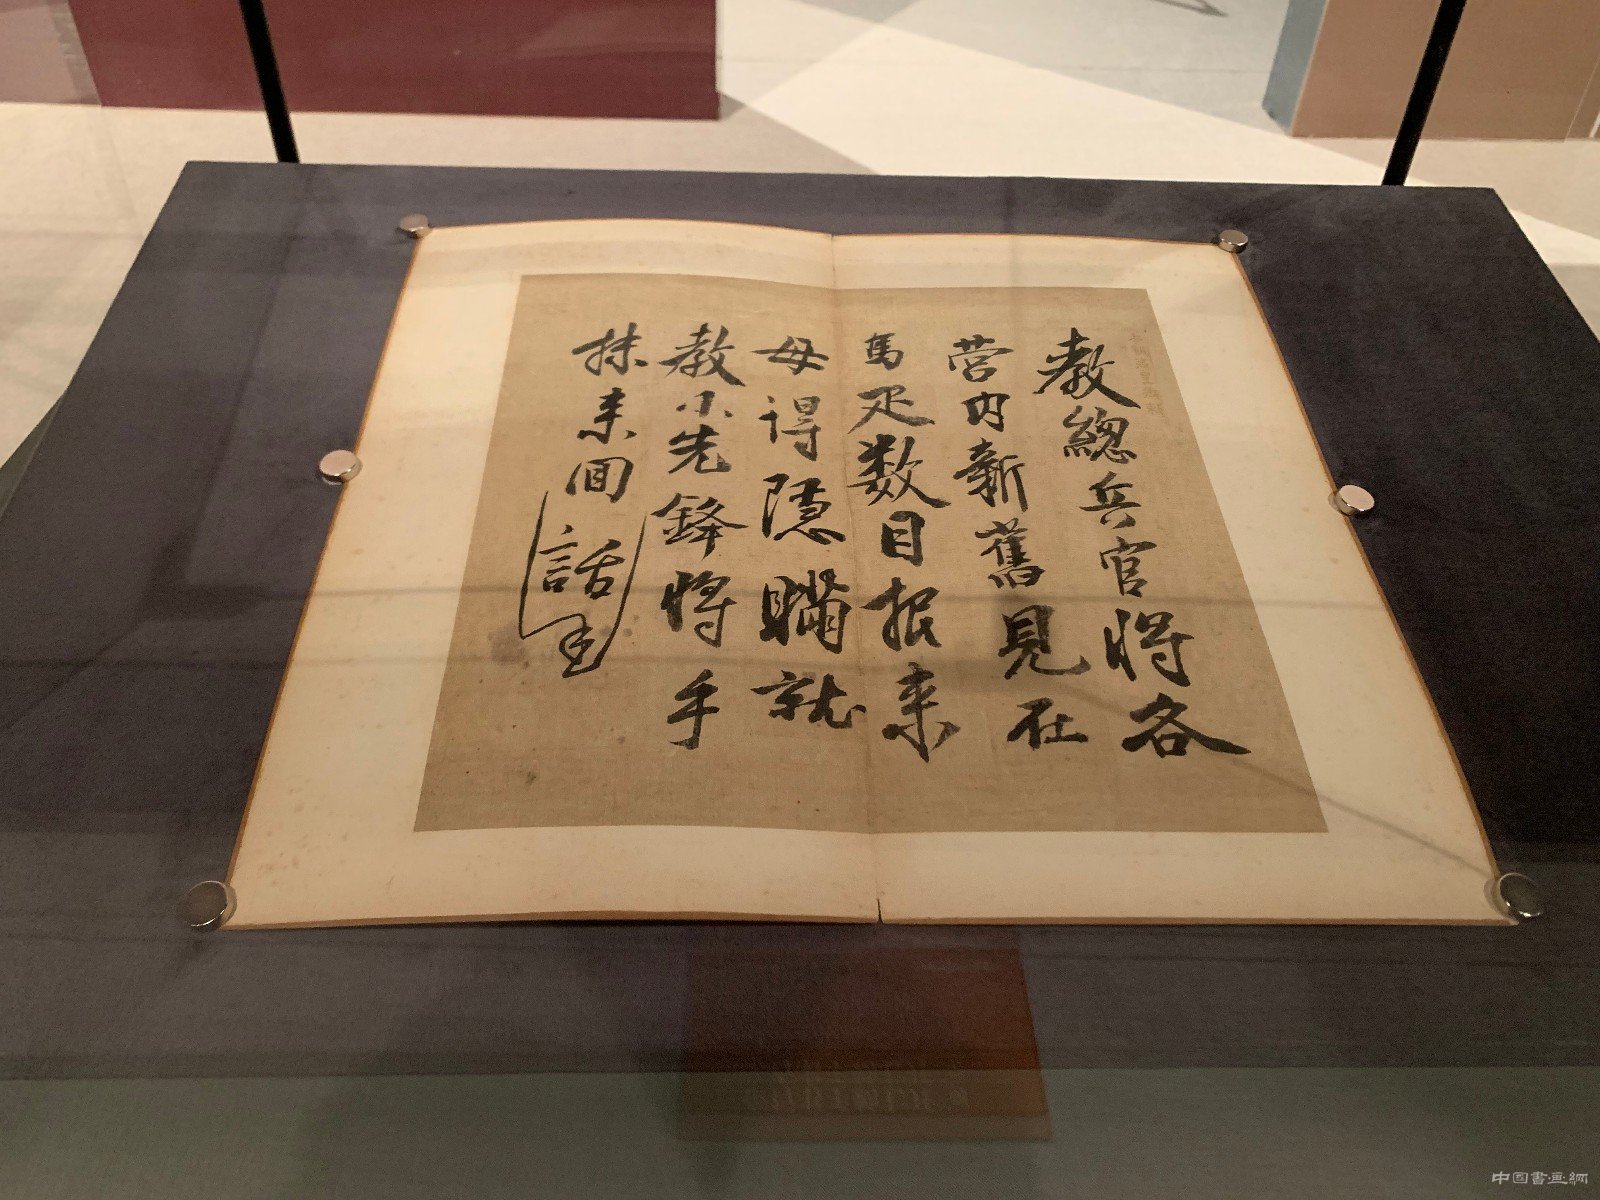 教總兵官將各
營内新舊見在
馬疋数目报来
毋得隱瞞就
教小先鋒將手
抹来囬話
中国書画網